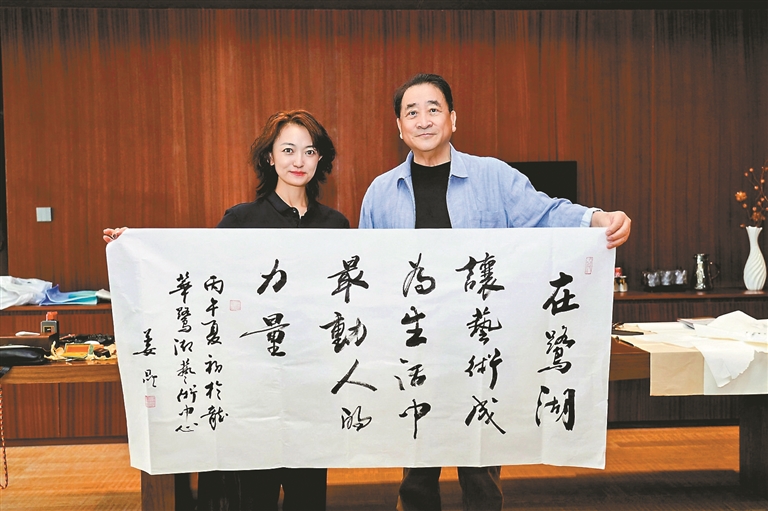 在鷺湖
讓藝術成
為生活中
最動人的
力量
丙午夏初於龍
華鷺湖藝術中心
姜昆